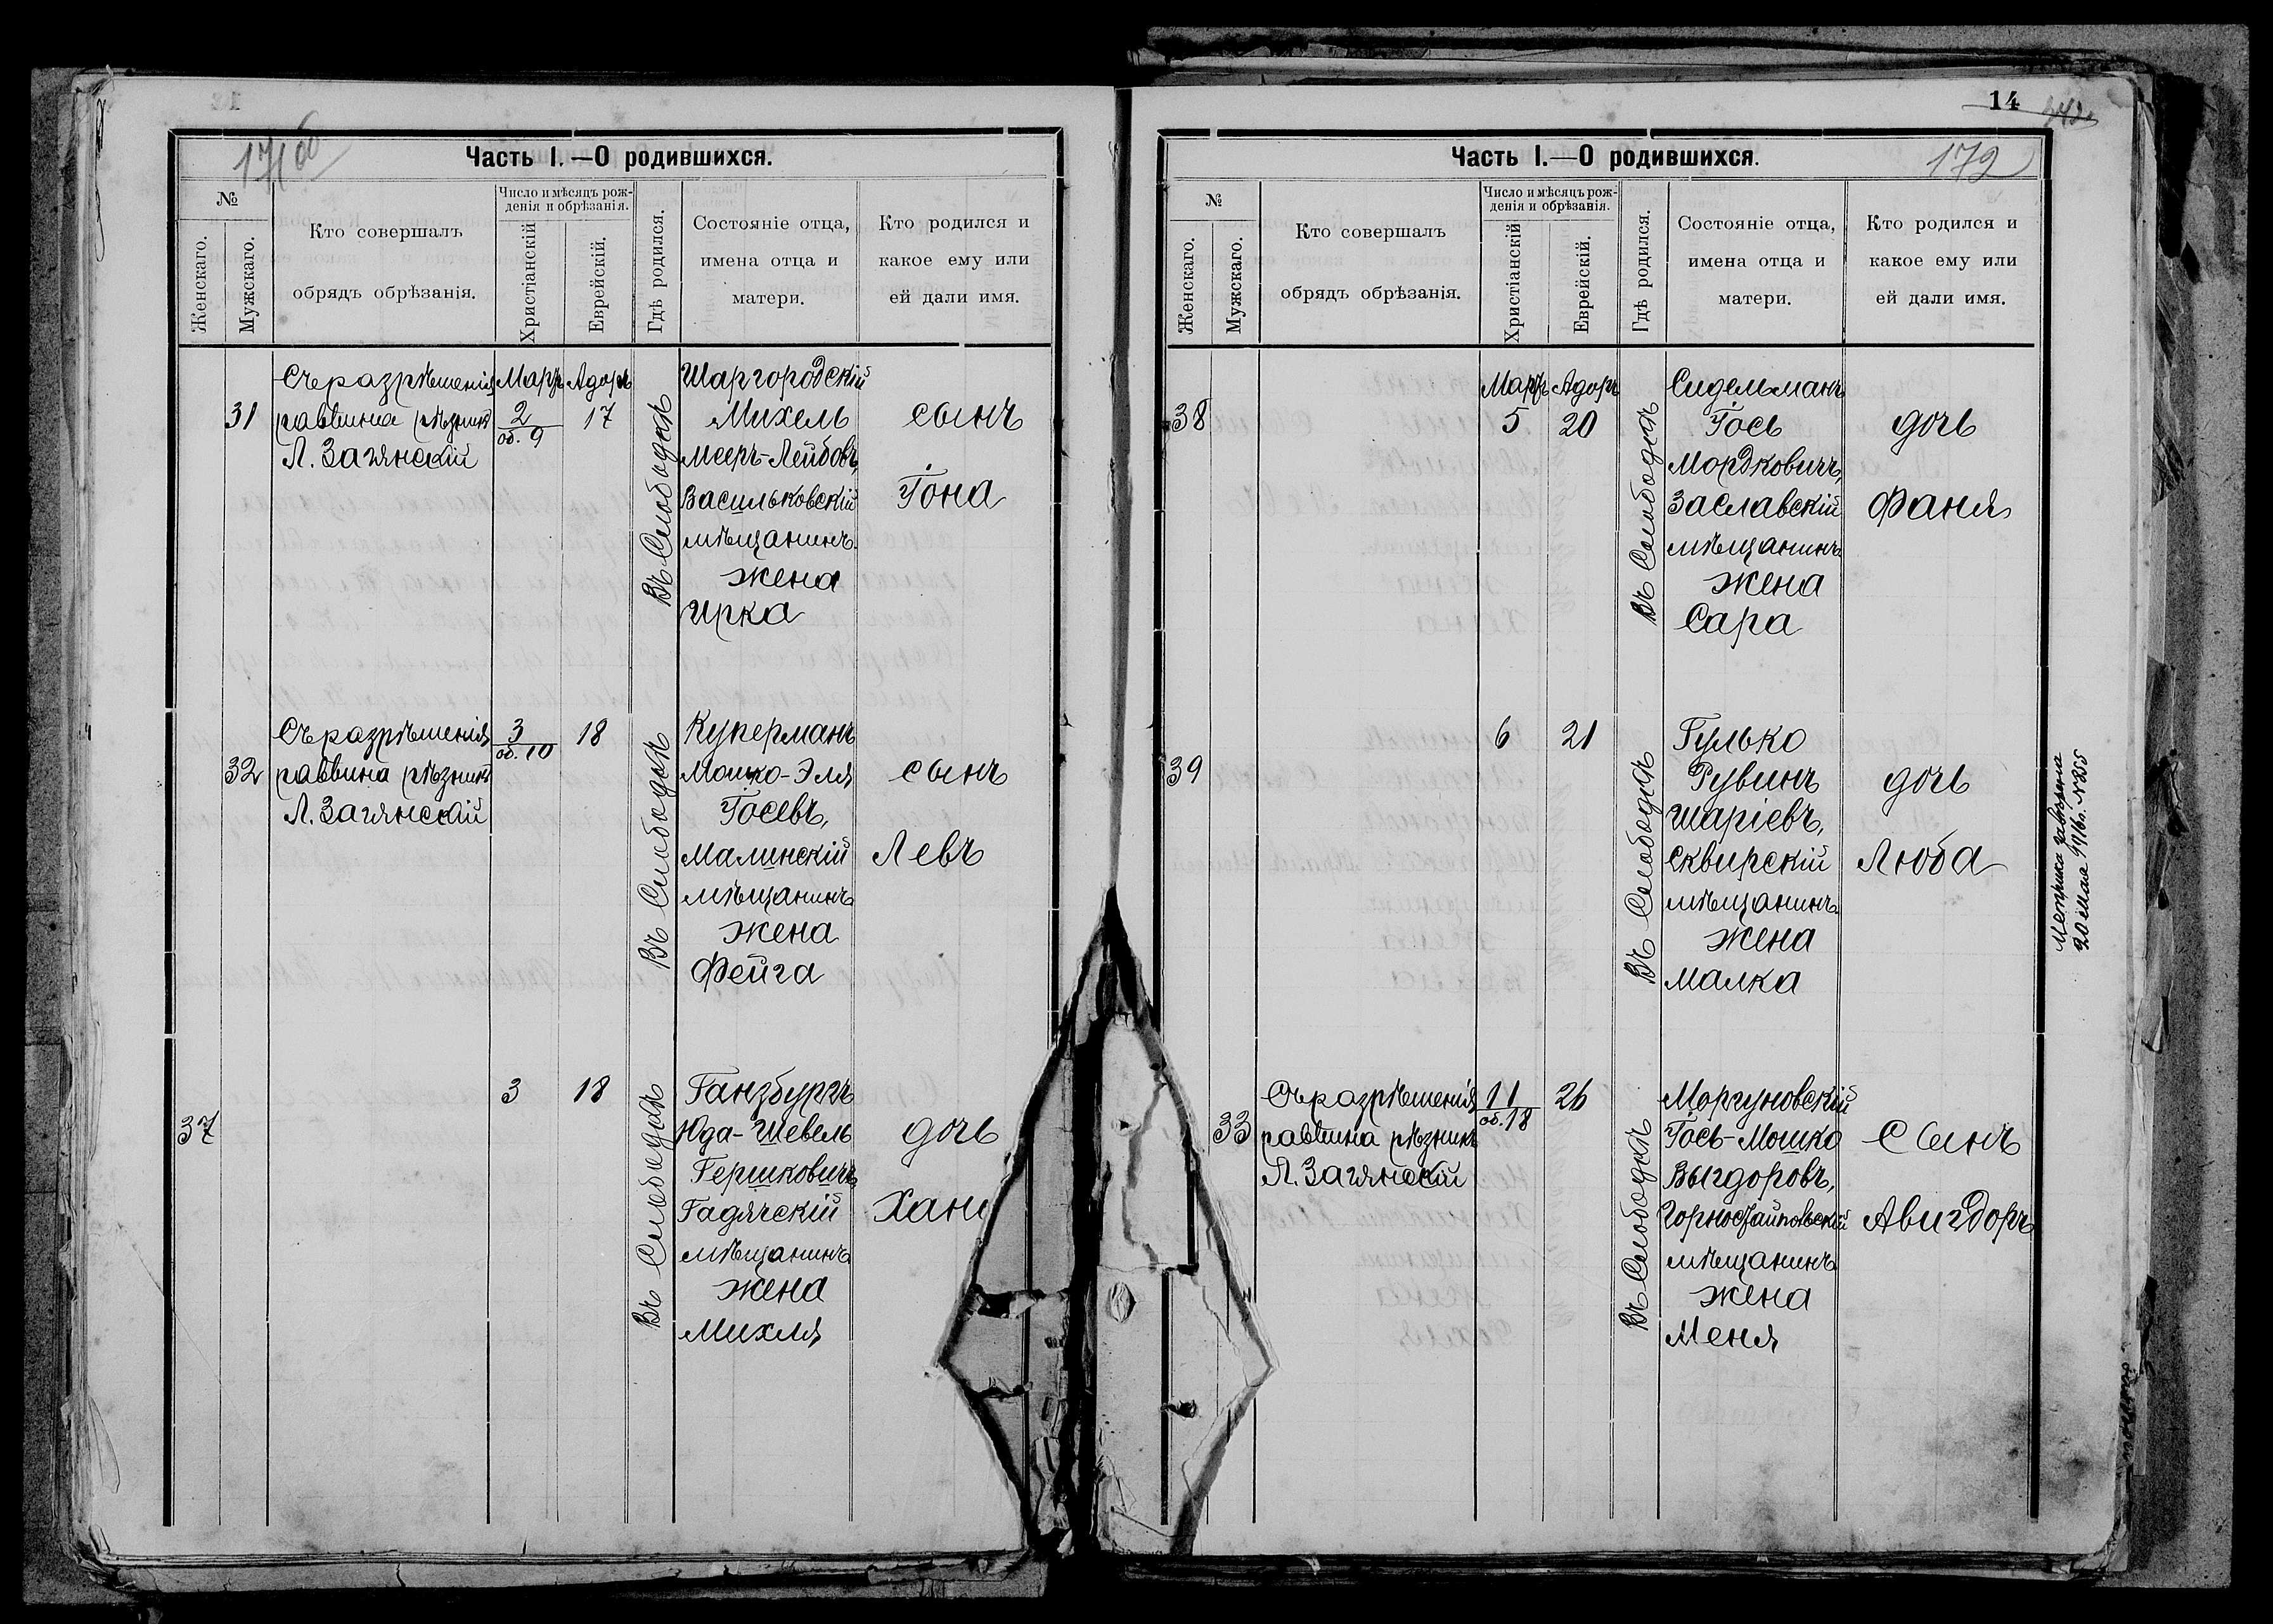 171 об
Часть I.—О родившихся.
№
Женскаго.
Мужскаго.
Кто совершалъ
обрядъ обрѣзанія.
Число и мѣсяцъ рож-
денія и обрѣзанія.
Христіанскій
Еврейскій.
Гдѣ родился.
Состояніе отца,
имена отца и
матери.
Кто родился и
какое ему или
ей дали имя.
31
Съ разрѣшенія
раввина рѣзникъ
Л. Загянскій
Мартъ
2
об. 9
Адоръ
17
Въ Слободкѣ
Шаргородскій
Михель
Мееръ-Лейбовъ,
Васильковскій
мѣщанинъ
жена
Ирка
сынъ
Іона
32
Съ разрѣшенія
раввина рѣзникъ
Л. Загянскій
3
об. 10
18
Въ Слободкѣ
Куперманъ
Мошко-Эля
Іосевъ,
Малинскій
мѣщанинъ
жена
Фейга
сынъ
Левъ
37
3
18
Въ Слободкѣ
Ганзбургъ
Юда-Шевель
Гершковичъ
Гадячскій
мѣщанинъ
жена
Михля
дочь
Хан
14
172
Часть I.—О родившихся.
№
Женскаго.
Мужскаго.
Кто совершалъ
обрядъ обрѣзанія.
Число и мѣсяцъ рож-
денія и обрѣзанія.
Христіанскій
Еврейскій.
Гдѣ родился.
Состояніе отца,
имена отца и
матери.
Кто родился и
какое ему или
ей дали имя.
38
Мартъ
5
Адоръ
20
Въ Слободкѣ
Сидельманъ
Іось
Мордковичъ,
Заславскій
мѣщанинъ
жена
Сара
дочь
Фаня
39
6
21
Въ Слободкѣ
Гулько
Рувинъ
Шаріевъ,
Сквирскій
мѣщанинъ
жена
Малка
дочь
Люба
Метрика заверена
20 мая 1916 г. №355
33
Съ разрѣшенія
раввина рѣзникъ
Л. Загянскій
11
об. 18
26
Въ Слободкѣ
Моргуновскій
Іось-Мошко
Выгдоровъ,
Горностайпольскій
мѣщанинъ
жена
Меня
сынъ
Авигдоръ